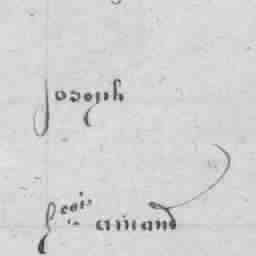 Joseph
fcois amand